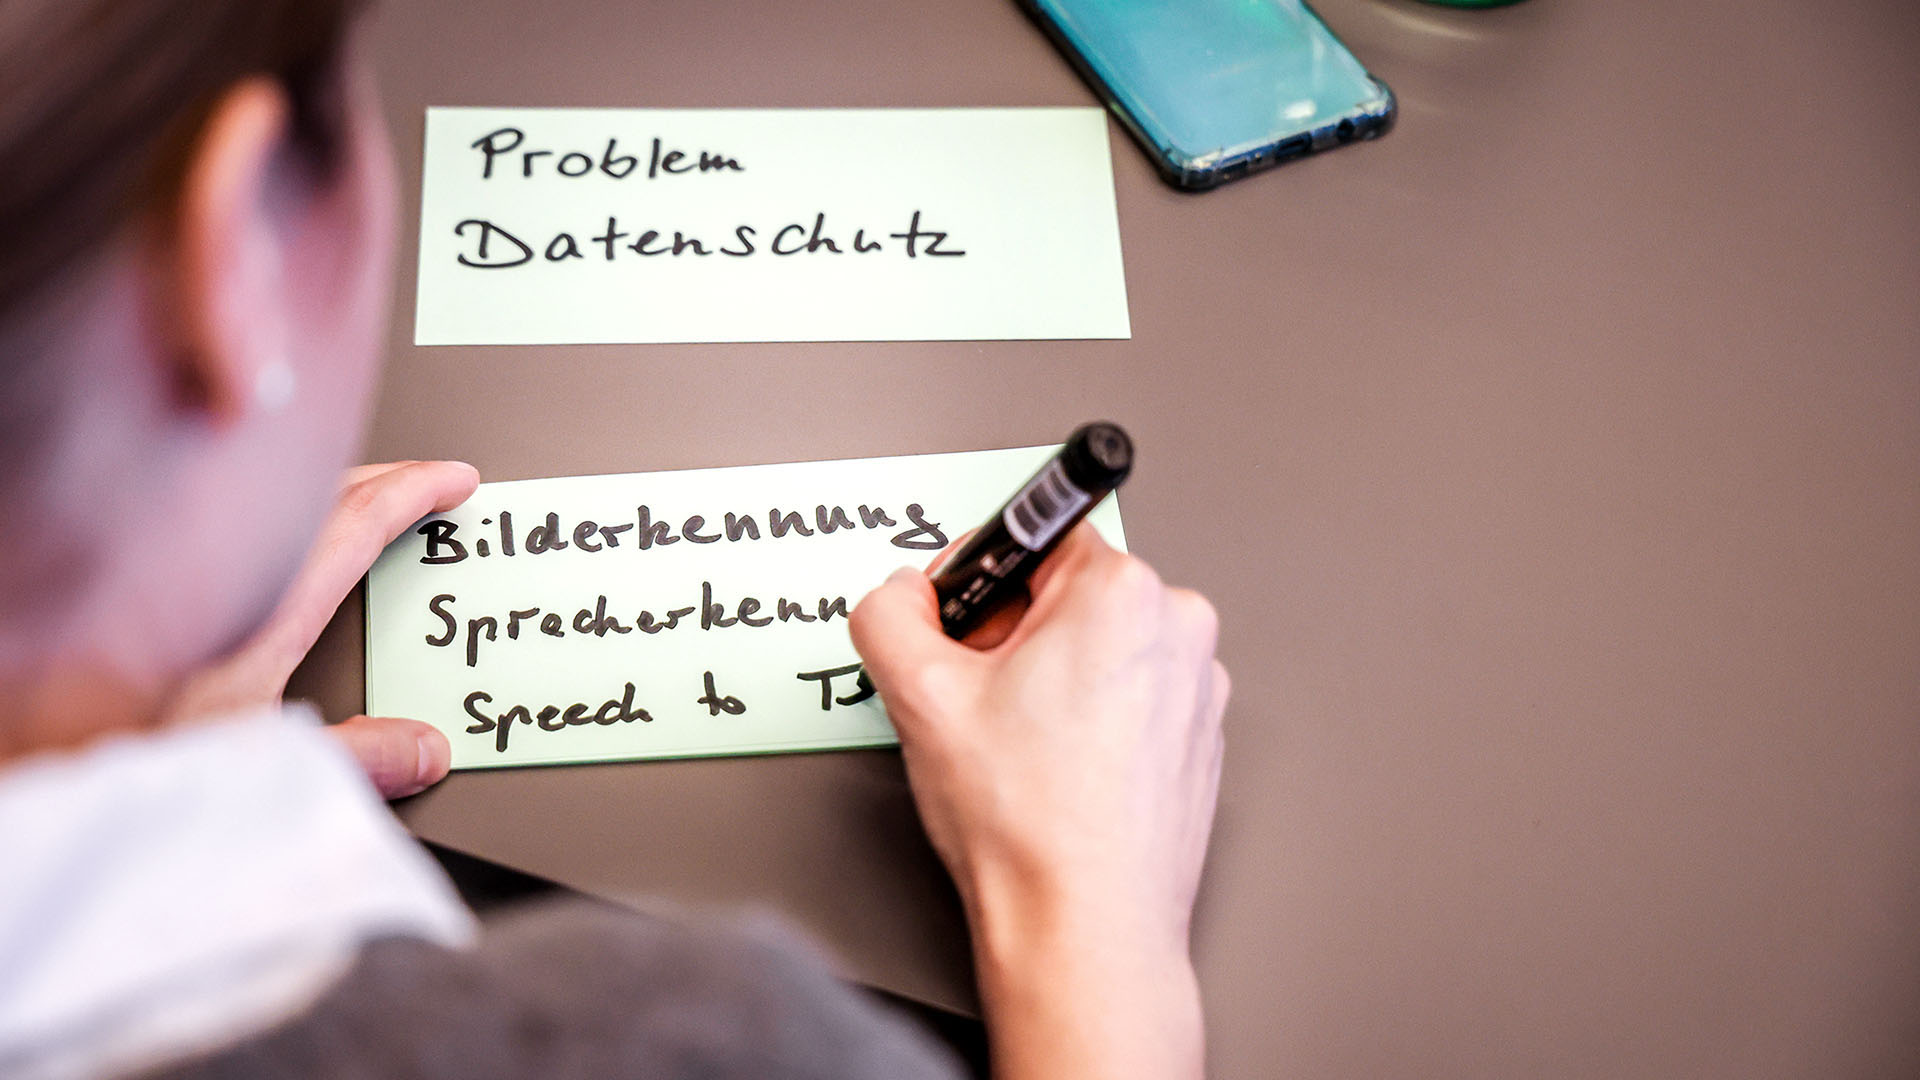 Problem
Datenschutz
Bilderkennung
Spracherkenn
Speech to T